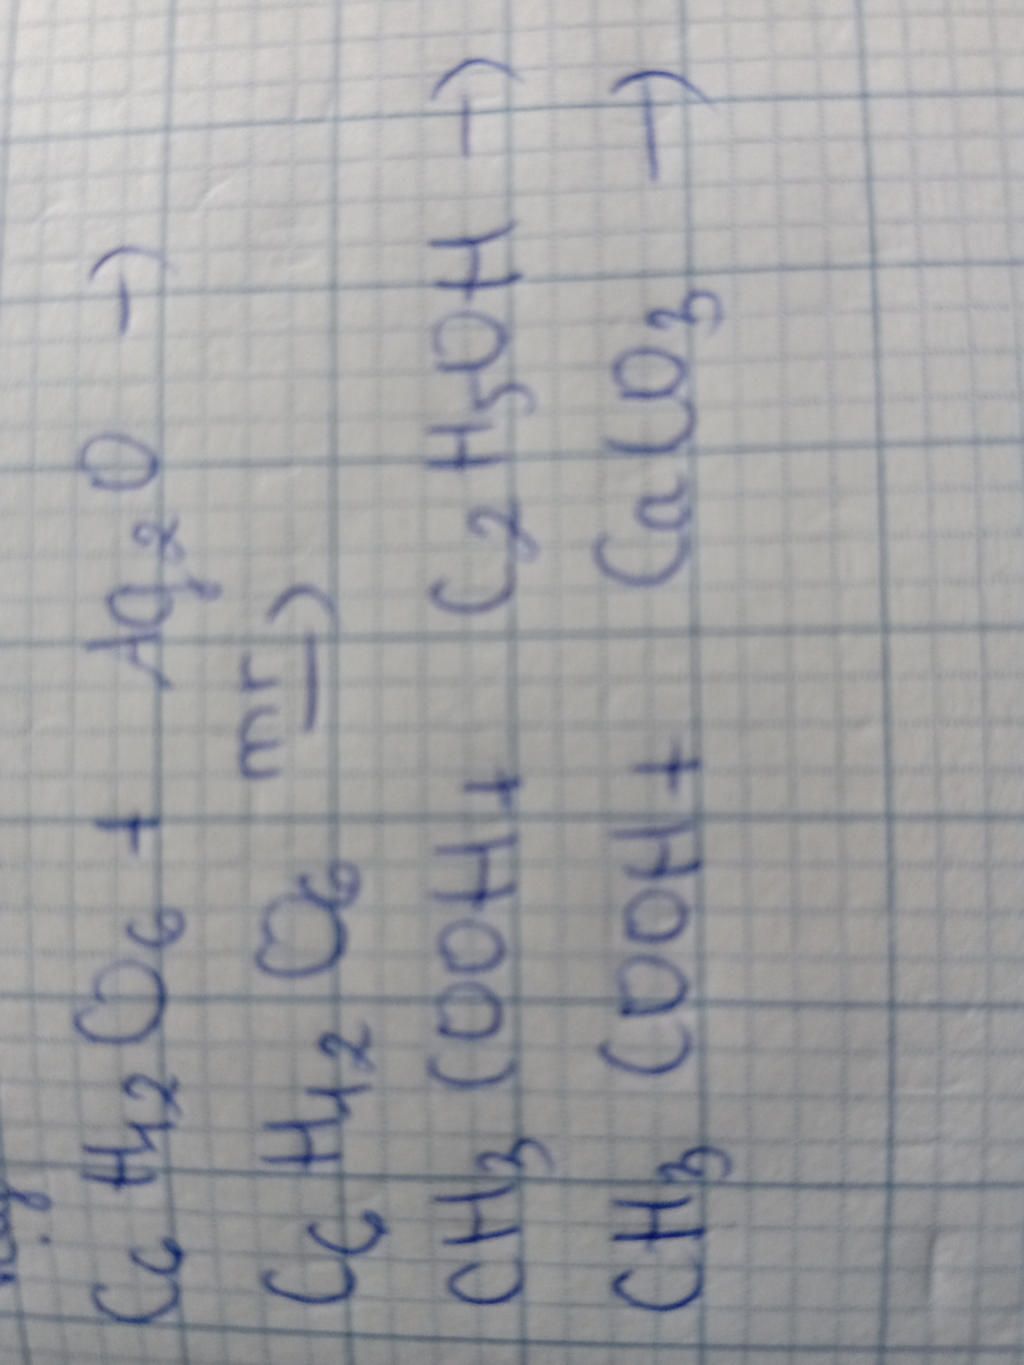 C₆H₁₂O₆ + Ag₂O →
C₆H₁₂O₆ mr →
CH₃COOH + C₂H₅OH →
CH₃COOH + CaCO₃ →